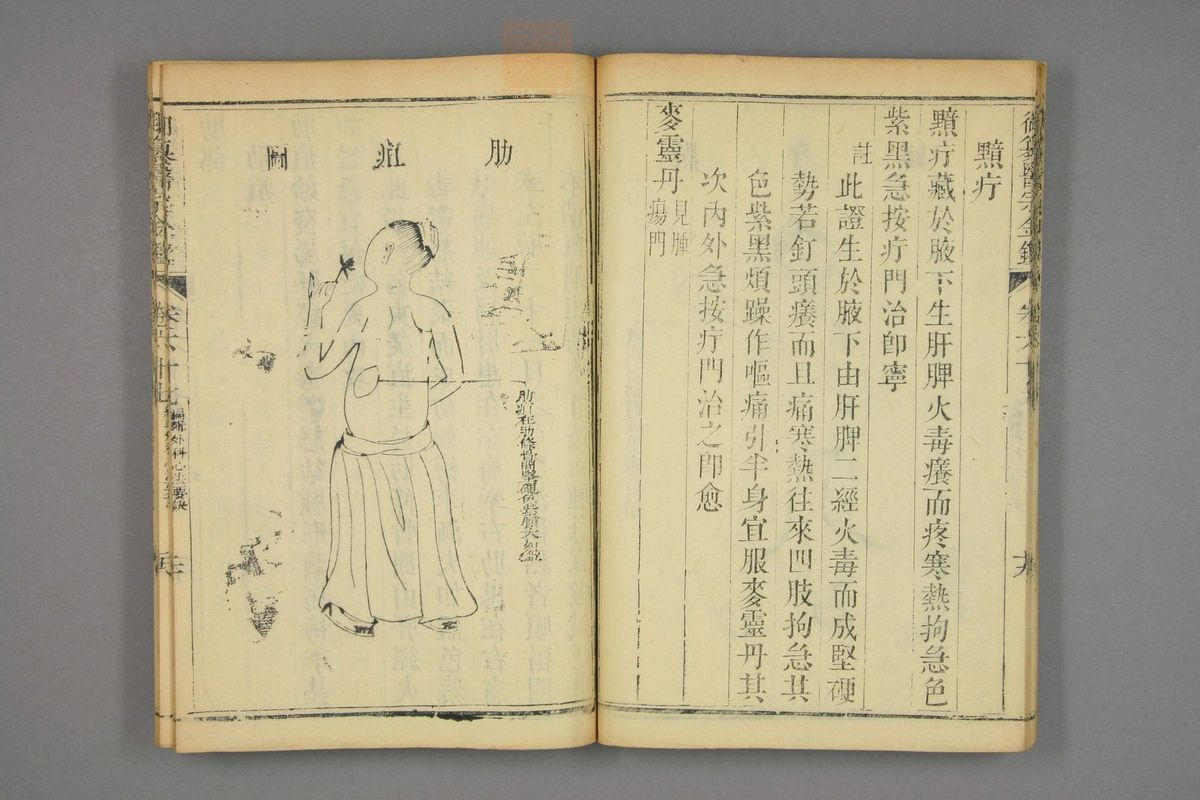 黯疔
黯疔藏於腋下生肝脾火毒癢而疼寒熱拘急色
紫黑急按疔門治即寧
註
此證生於腋下由肝脾二經火毒而成堅硬
勢若釘頭癢而且痛寒熱往來四肢拘急其
色紫黑煩躁作嘔痛引半身宜服麥靈丹其
次內外急按疔門治之即愈
麥靈丹
見腫
瘍門
肋疽圖
肋疽在肋條骨間
御纂醫宗金鑑
卷六十七
編輯外科心法要訣